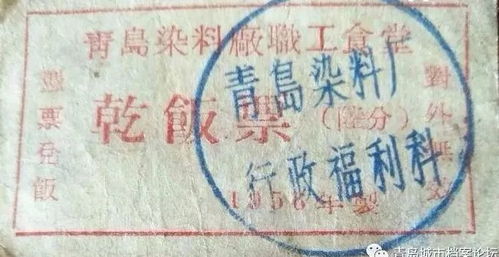 靑島染料廠職工食堂
憑票兌飯
乾飯票
對外無效
1956年製
青島染料厂
行政福利科
青岛城市档案论坛